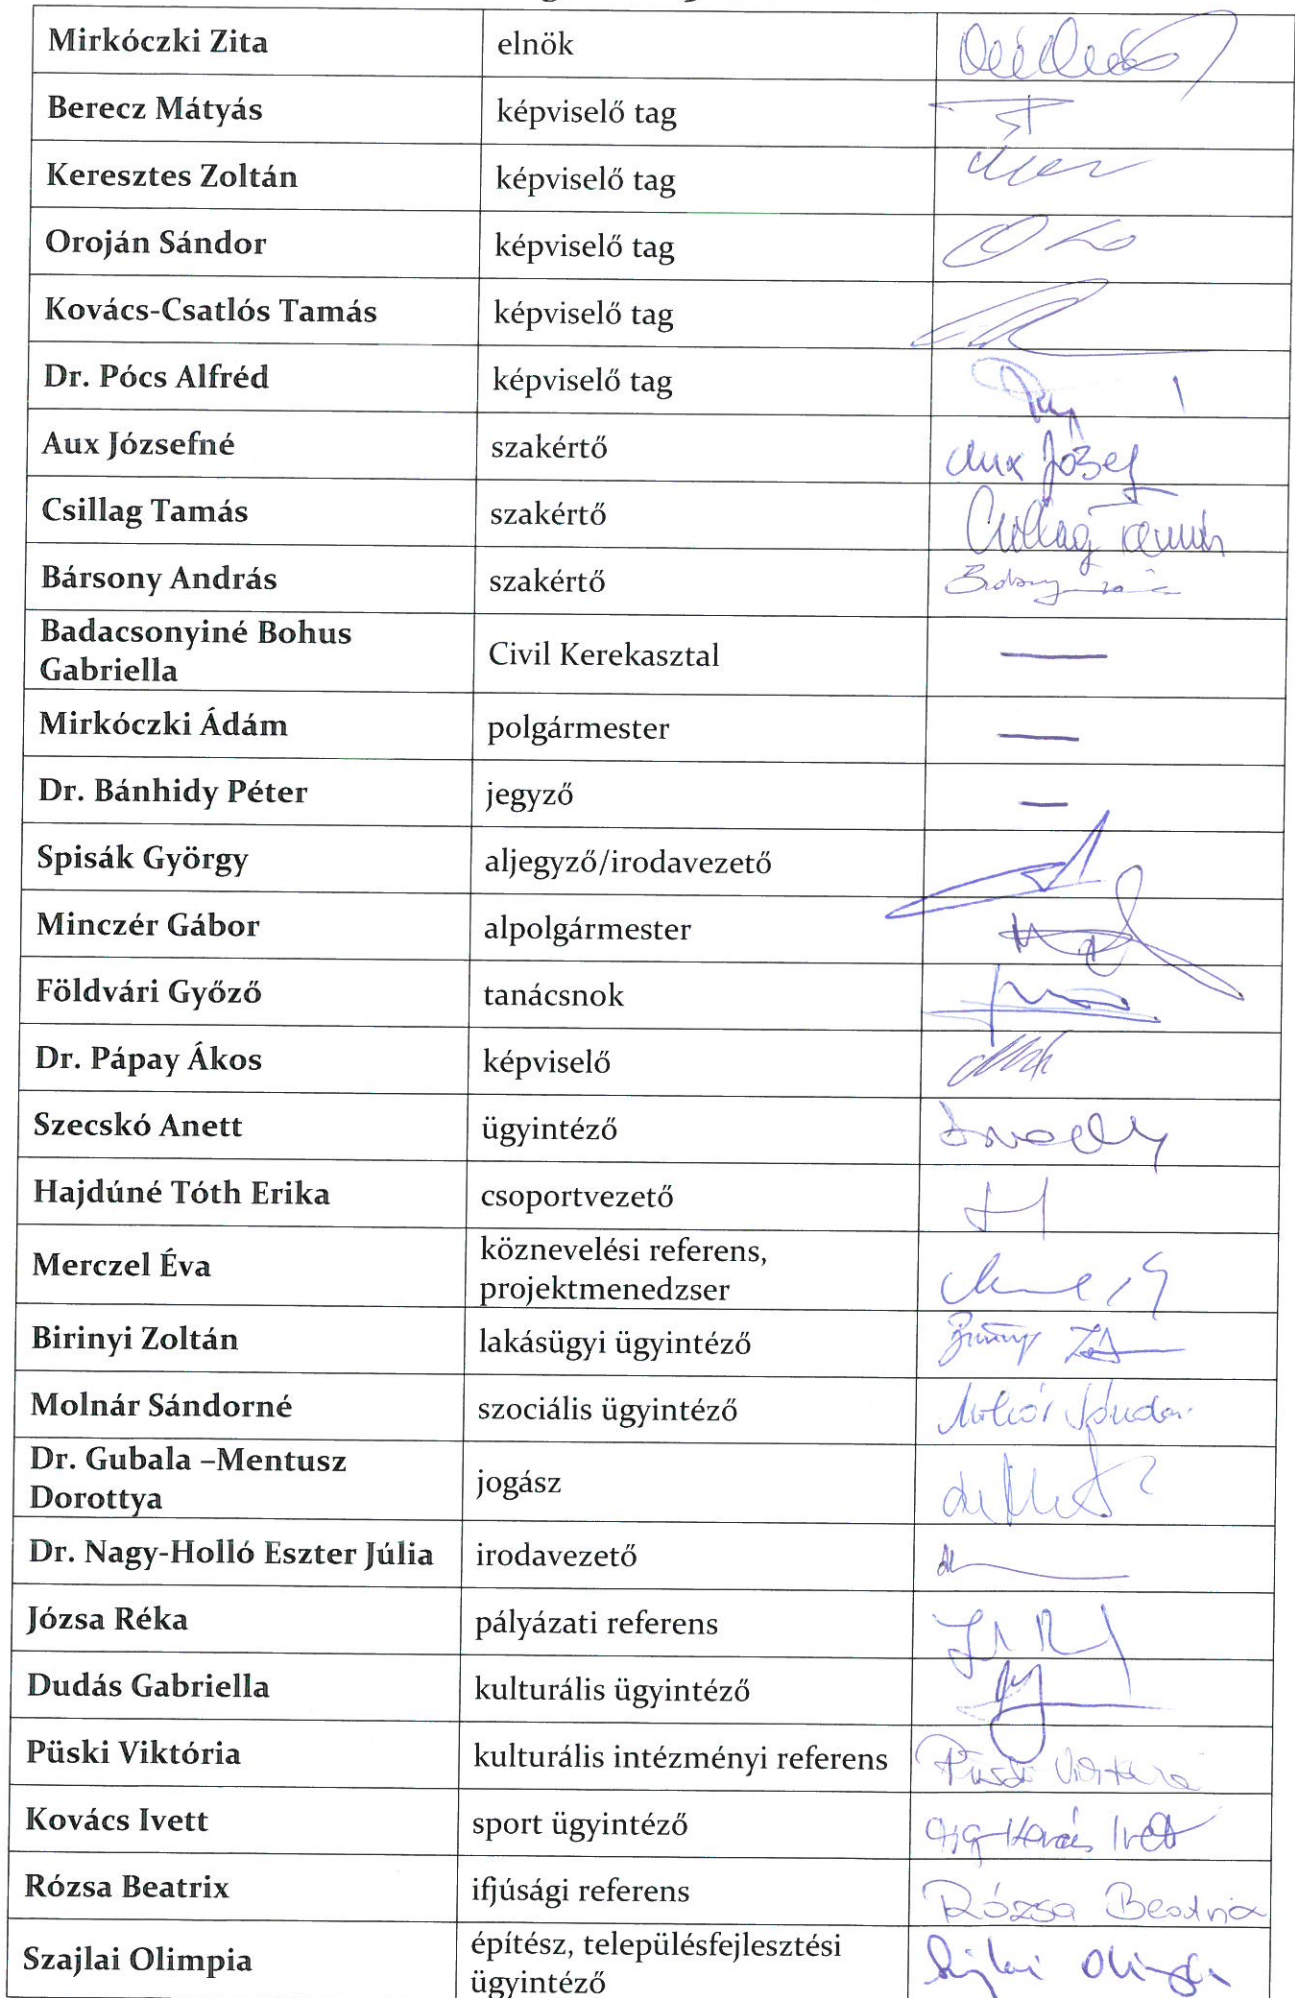 Mirkóczki Zita elnök
Berecz Mátyás képviselő tag
Keresztes Zoltán képviselő tag
Oroján Sándor képviselő tag
Kovács-Csatlós Tamás képviselő tag
Dr. Pócs Alfréd képviselő tag
Aux Józsefné szakértő Aux József
Csillag Tamás szakértő Csillag Tamás
Bársony András szakértő
Badacsonyiné Bohus
Gabriella Civil Kerekasztal —
Mirkóczki Ádám polgármester —
Dr. Bánhidy Péter jegyző —
Spisák György aljegyző/irodavezető
Minczér Gábor alpolgármester
Földvári Győző tanácsnok
Dr. Pápay Ákos képviselő
Szecskó Anett ügyintéző
Hajdúné Tóth Erika csoportvezető
Merczel Éva köznevelési referens,
projektmenedzser
Birinyi Zoltán lakásügyi ügyintéző
Molnár Sándorné szociális ügyintéző
Dr. Gubala –Mentusz
Dorottya jogász
Dr. Nagy-Holló Eszter Júlia irodavezető
Józsa Réka pályázati referens
Dudás Gabriella kulturális ügyintéző
Püski Viktória kulturális intézményi referens Püski Viktória
Kovács Ivett sport ügyintéző Kovács Ivett
Rózsa Beatrix ifjúsági referens Rózsa Beatrix
Szajlai Olimpia építész, településfejlesztési
ügyintéző Szajlai Olimpia